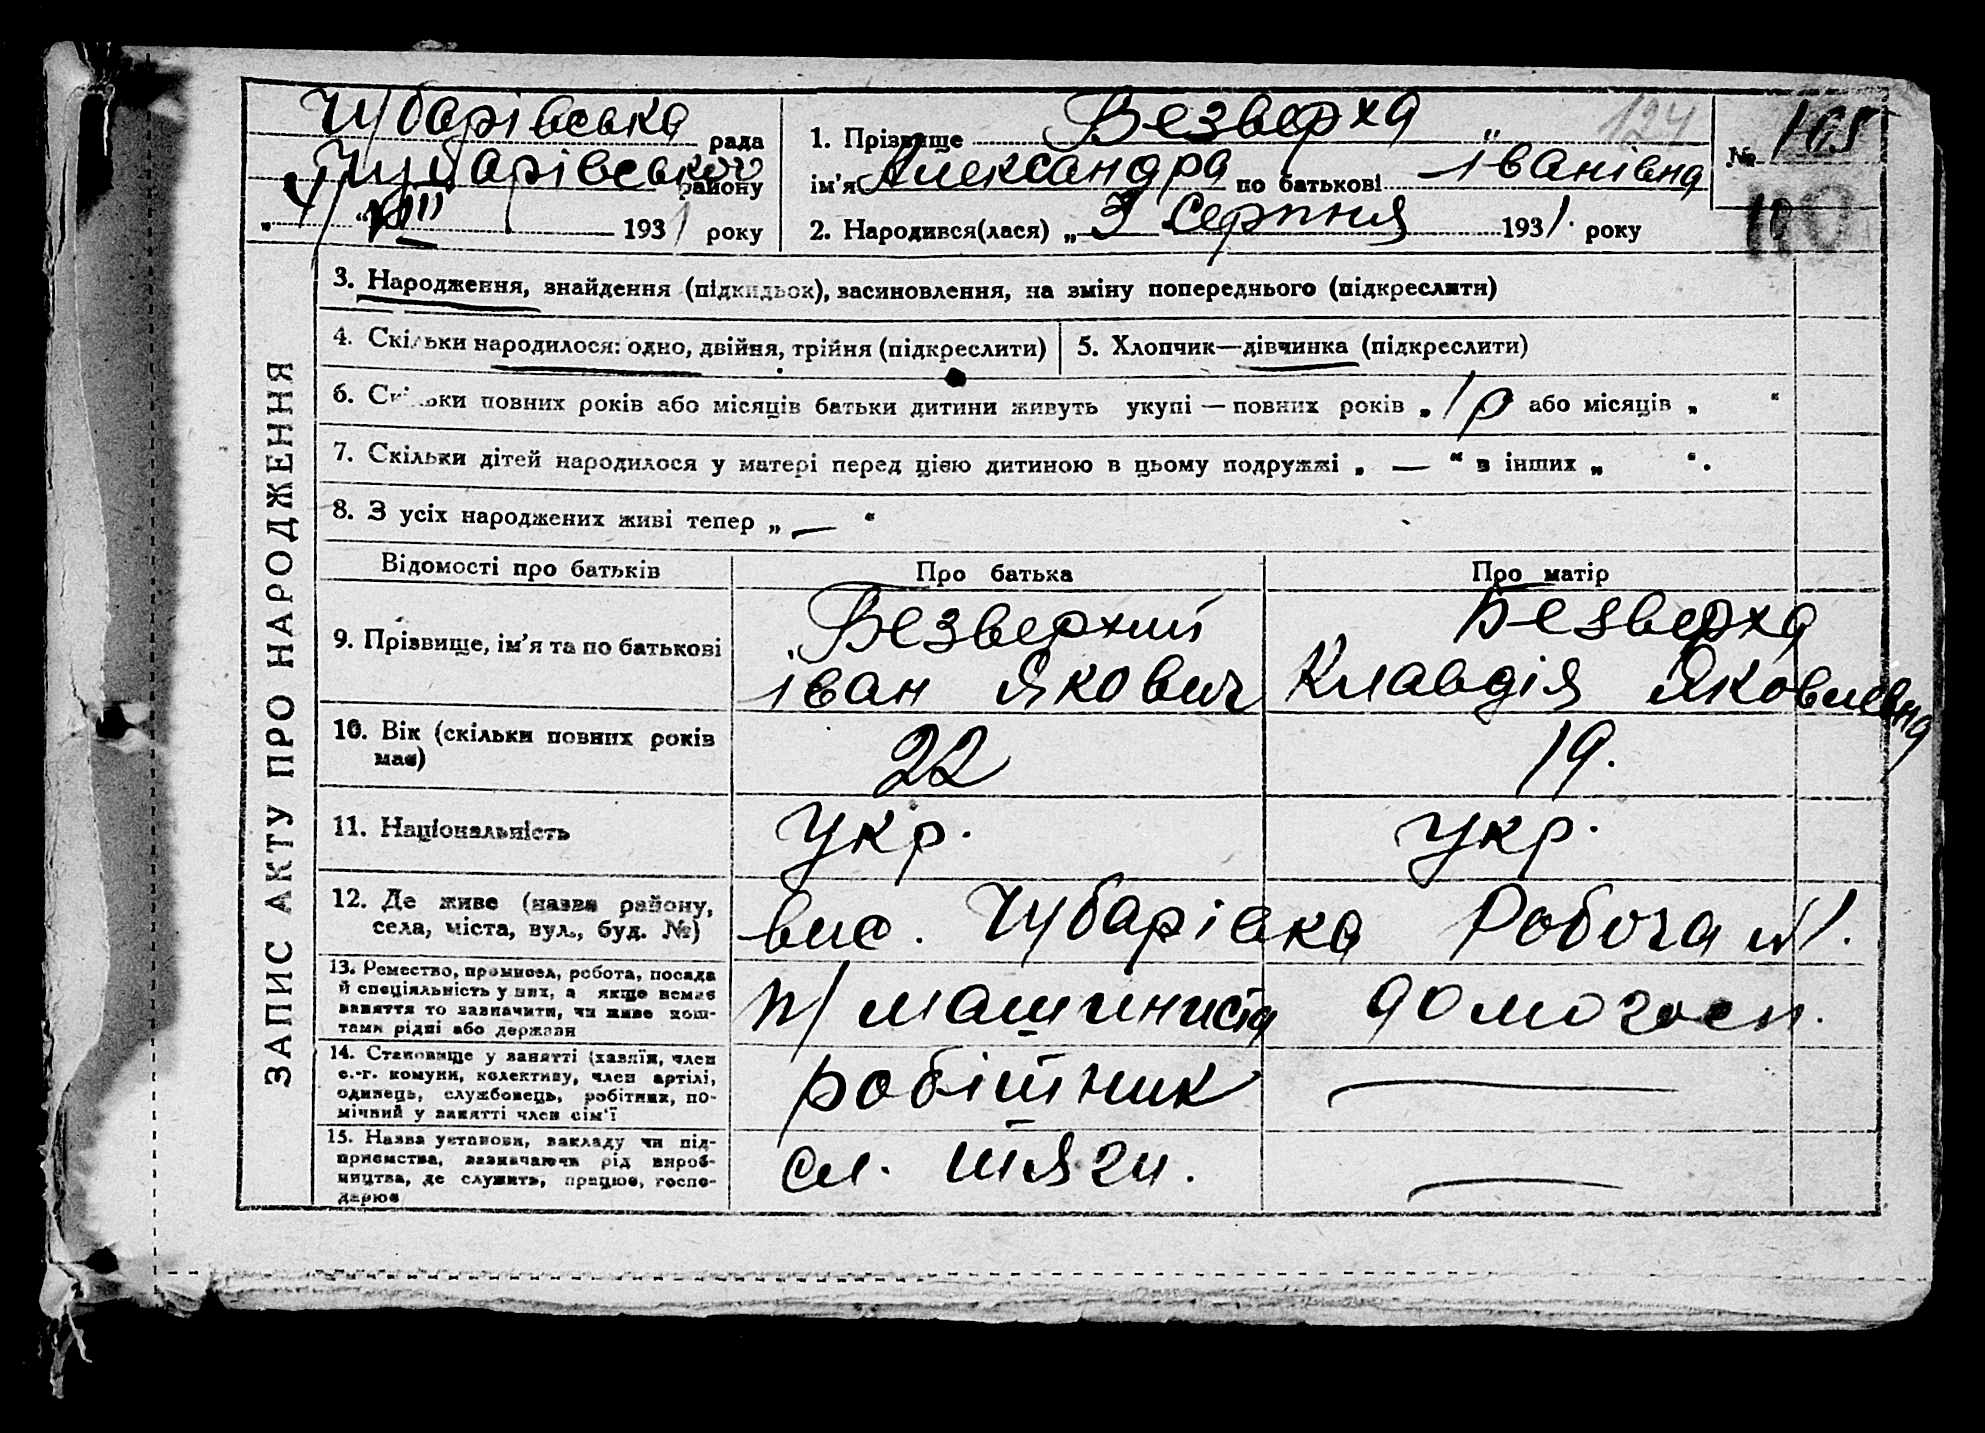 Чубарівська рада
Чубарівського району
„ " VIII 1931 року
1. Прізвище Безверха
ім'я Александра по батькові Іванівна
2. Народився(лася) „ 3 Серпня 1931. року
124
№ 165
110
ЗАПИС АКТУ ПРО НАРОДЖЕННЯ
3. Народження, знайдення (підкидьок), засиновлення, на зміну попереднього (підкреслити)
4. Скільки народилося: одно, двійня, трійня (підкреслити)
5. Хлопчик—дівчинка (підкреслити)
6. Скільки повних років або місяців батьки дитини живуть укупі — повних років „ 1 р або місяців „ "
7. Скільки дітей народилося у матері перед цією дитиною в цьому подружжі „ — " в інших „ ".
8. З усіх народжених живі тепер „ — "
Відомості про батьків Про батька Про матір
9. Прізвище, ім'я та по батькові
Безверхий
Іван Якович
Безверха
Клавдія Яковлевна
10. Вік (скільки повних років
має)
22
19.
11. Національність
Укр.
Укр.
12. Де живе (назва району,
села, міста, вул., буд. №)
вис. Чубарівка Робоча №1.
13. Ремество, промисел, робота, посада
й спеціяльність у них, а якщо немає
заняття то зазначити, чи живе кош-
тами рідні або держави
п/машиниста
домогосп.
14. Становище у занятті (хазяїн, член
с.-г. комуни, колективу, член артілі,
одинець, службовець, робітник, по-
мічний у занятті член сім'ї
робітник
15. Назва установи, закладу чи під-
приємства, зазначаючи рід вироб-
ництва, де служить, працює, госпо-
дарює
сл. тяги.